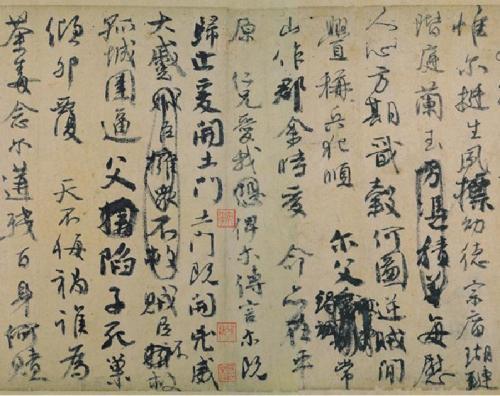 惟尔挺生夙標幼德宗廟瑚璉
階庭蘭玉方憑積善每慰
人心方期戩穀何圖逆賊間
釁稱兵犯順 尔父竭誠常
山作郡余時受 命亦在平
原 仁兄愛我恐俾尔傳言尔既
歸止爰開土門土門既開凶威
大蹙賊臣擁衆不救賊臣不救
孤城圍逼父陷子死巢
傾卵覆 天不悔禍誰為
荼毒念尔遘殘百身何贖